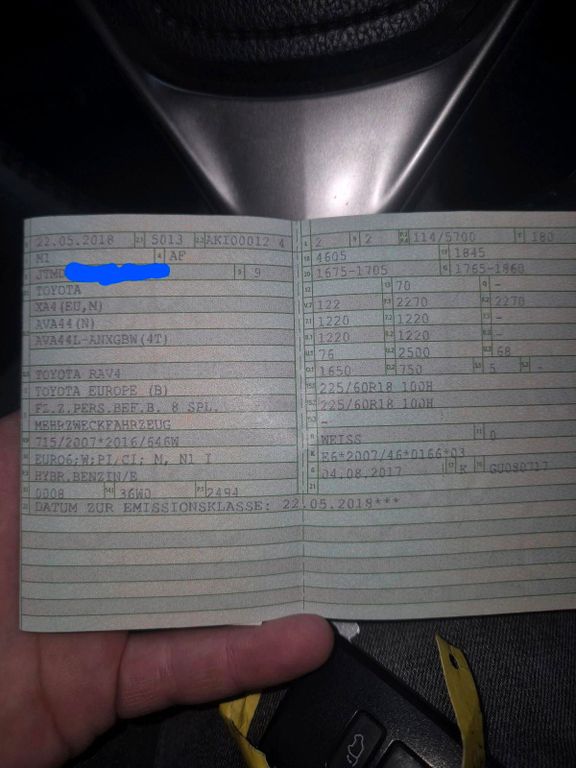 22.05.2018 5013 AKI00012 4
M1 AF
JTMD 9
TOYOTA
XA4(EU,M)
AVA44(N)
AVA44L-ANXGBW(4T)
TOYOTA RAV4
TOYOTA EUROPE (B)
FZ.Z.PERS.BEF.B. 8 SPL.
MEHRZWECKFAHRZEUG
715/2007*2016/646W
EURO6;W;PI/CI; M, N1 I
HYBR.BENZIN/E
0008 36W0 2494
DATUM ZUR EMISSIONSKLASSE: 22.05.2018***
2 2 114/5700 180
4605 1845
1675-1705 1765-1860
70 -
122 2270 2270
1220 1220 -
1220 1220 -
76 2500 68
1650 750 5 -
225/60R18 100H
225/60R18 100H
-
WEISS 0
E6*2007/46*0166*03
04.08.2017 K GU080717